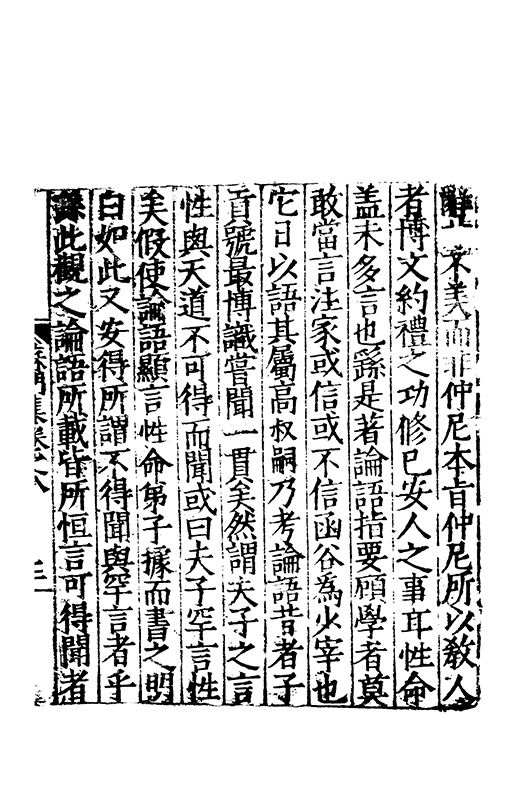 辭非不美而非仲尼本旨仲尼所以教人
者博文約禮之功修己安人之事耳性命
盖未多言也繇是著論語指要顧學者莫
敢當言注家或信或不信函谷為少宰也
它日以語其屬高叔嗣乃考論語昔者子
貢號最博識嘗聞一貫矣然謂夫子之言
性與天道不可得而聞或曰夫子罕言性
矣假使論語顯言性命弟子據而書之明
白如此又安得所謂不得聞與罕言者乎
繇此觀之論語所載皆所恒言可得聞者
集卷之六
三